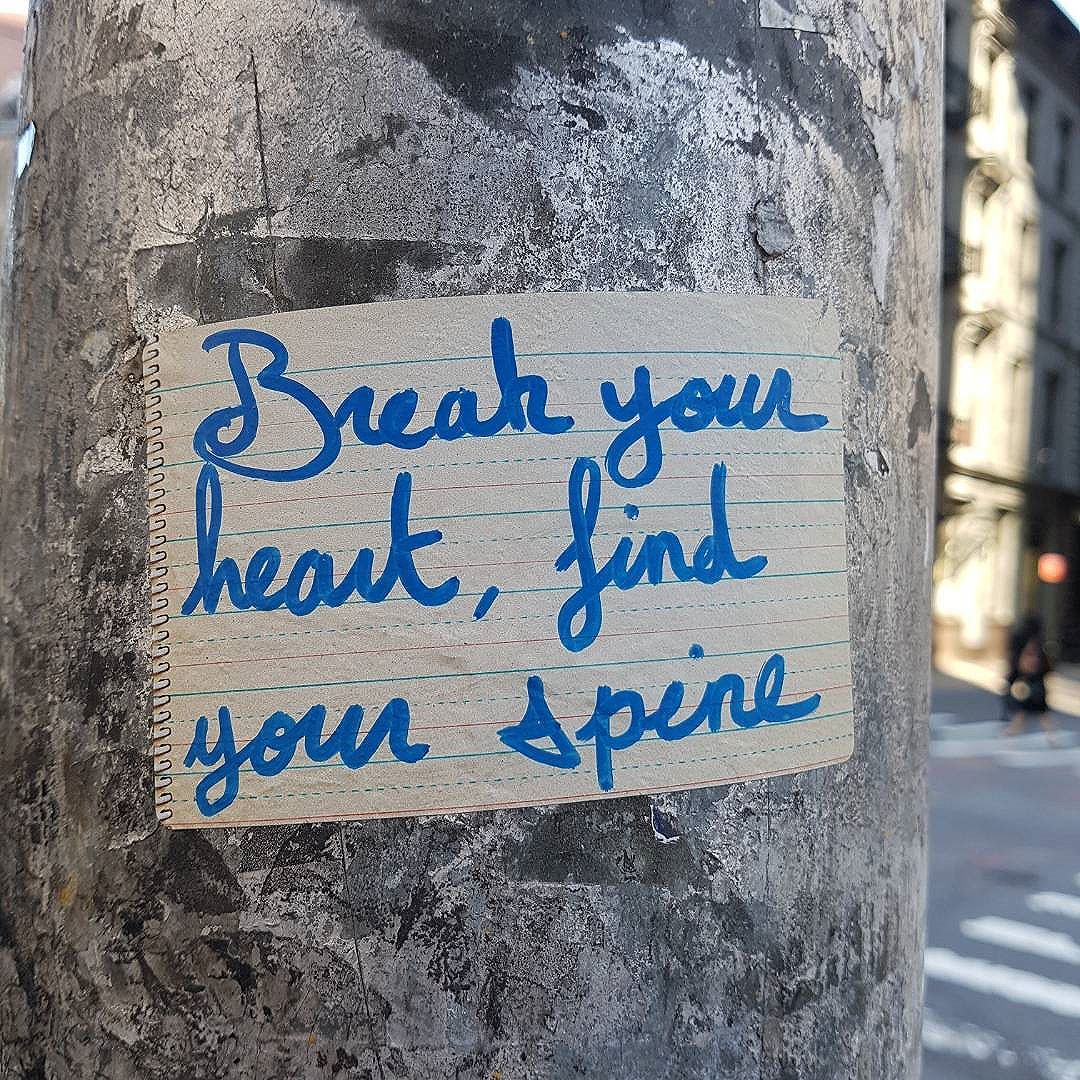 Break your
heart, find
your spine